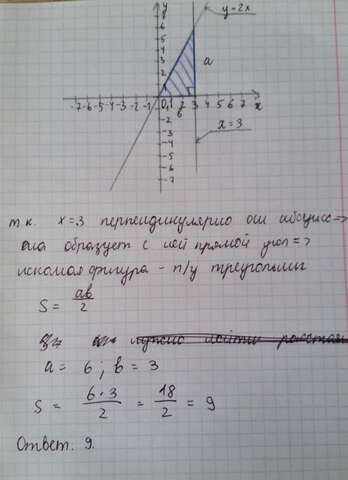 y
8
7
6
5
4
3
2
1
y=2x
a
b
-7 -6 -5 -4 -3 -2 -1 0 1 2 3 4 5 6 7 x
-1
-2
-3
-4
-5
-6
-7
x=3
т.к. x=3 перпендикулярно оси абсцисс=>
она образует с ней прямой угол=>
искомая фигура - п/у треугольник
S = ab/2
нужно найти
a = 6; b = 3
S = 6·3/2 = 18/2 = 9
Ответ: 9.